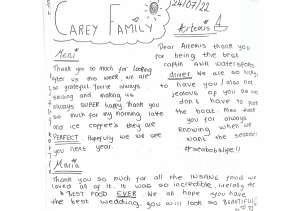 CAREY FAMILY
24/07/22
Meni
Thank you so much for looking
after us this week we are
so grateful. You're always
smiling and making us
always SUPER happy thank you
so much for my morning latte
and ice coffee's they are
PERFECT. Hopefully we will see
you next year.
Artemis
Dear Artemis thank you
for being the best
captin AND watersports
driver. We are so lucky
to have you! Also not
jealous of you as we
don't have to park
the boat. Thank
you for always
knowing when we
want the
Maria
Thank you so much for all the INSANE food we
loved all of it. It was so incredible, literally the
BEST FOOD EVER. We all hope you have
the best wedding, you will look so BEAUTIFUL